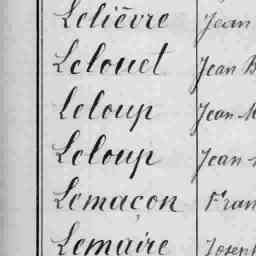 Lelièvre Jean
Lelouet Jean B
Leloup Jean M
Leloup Jean
Lemaçon Fran
Lemaire Joseph